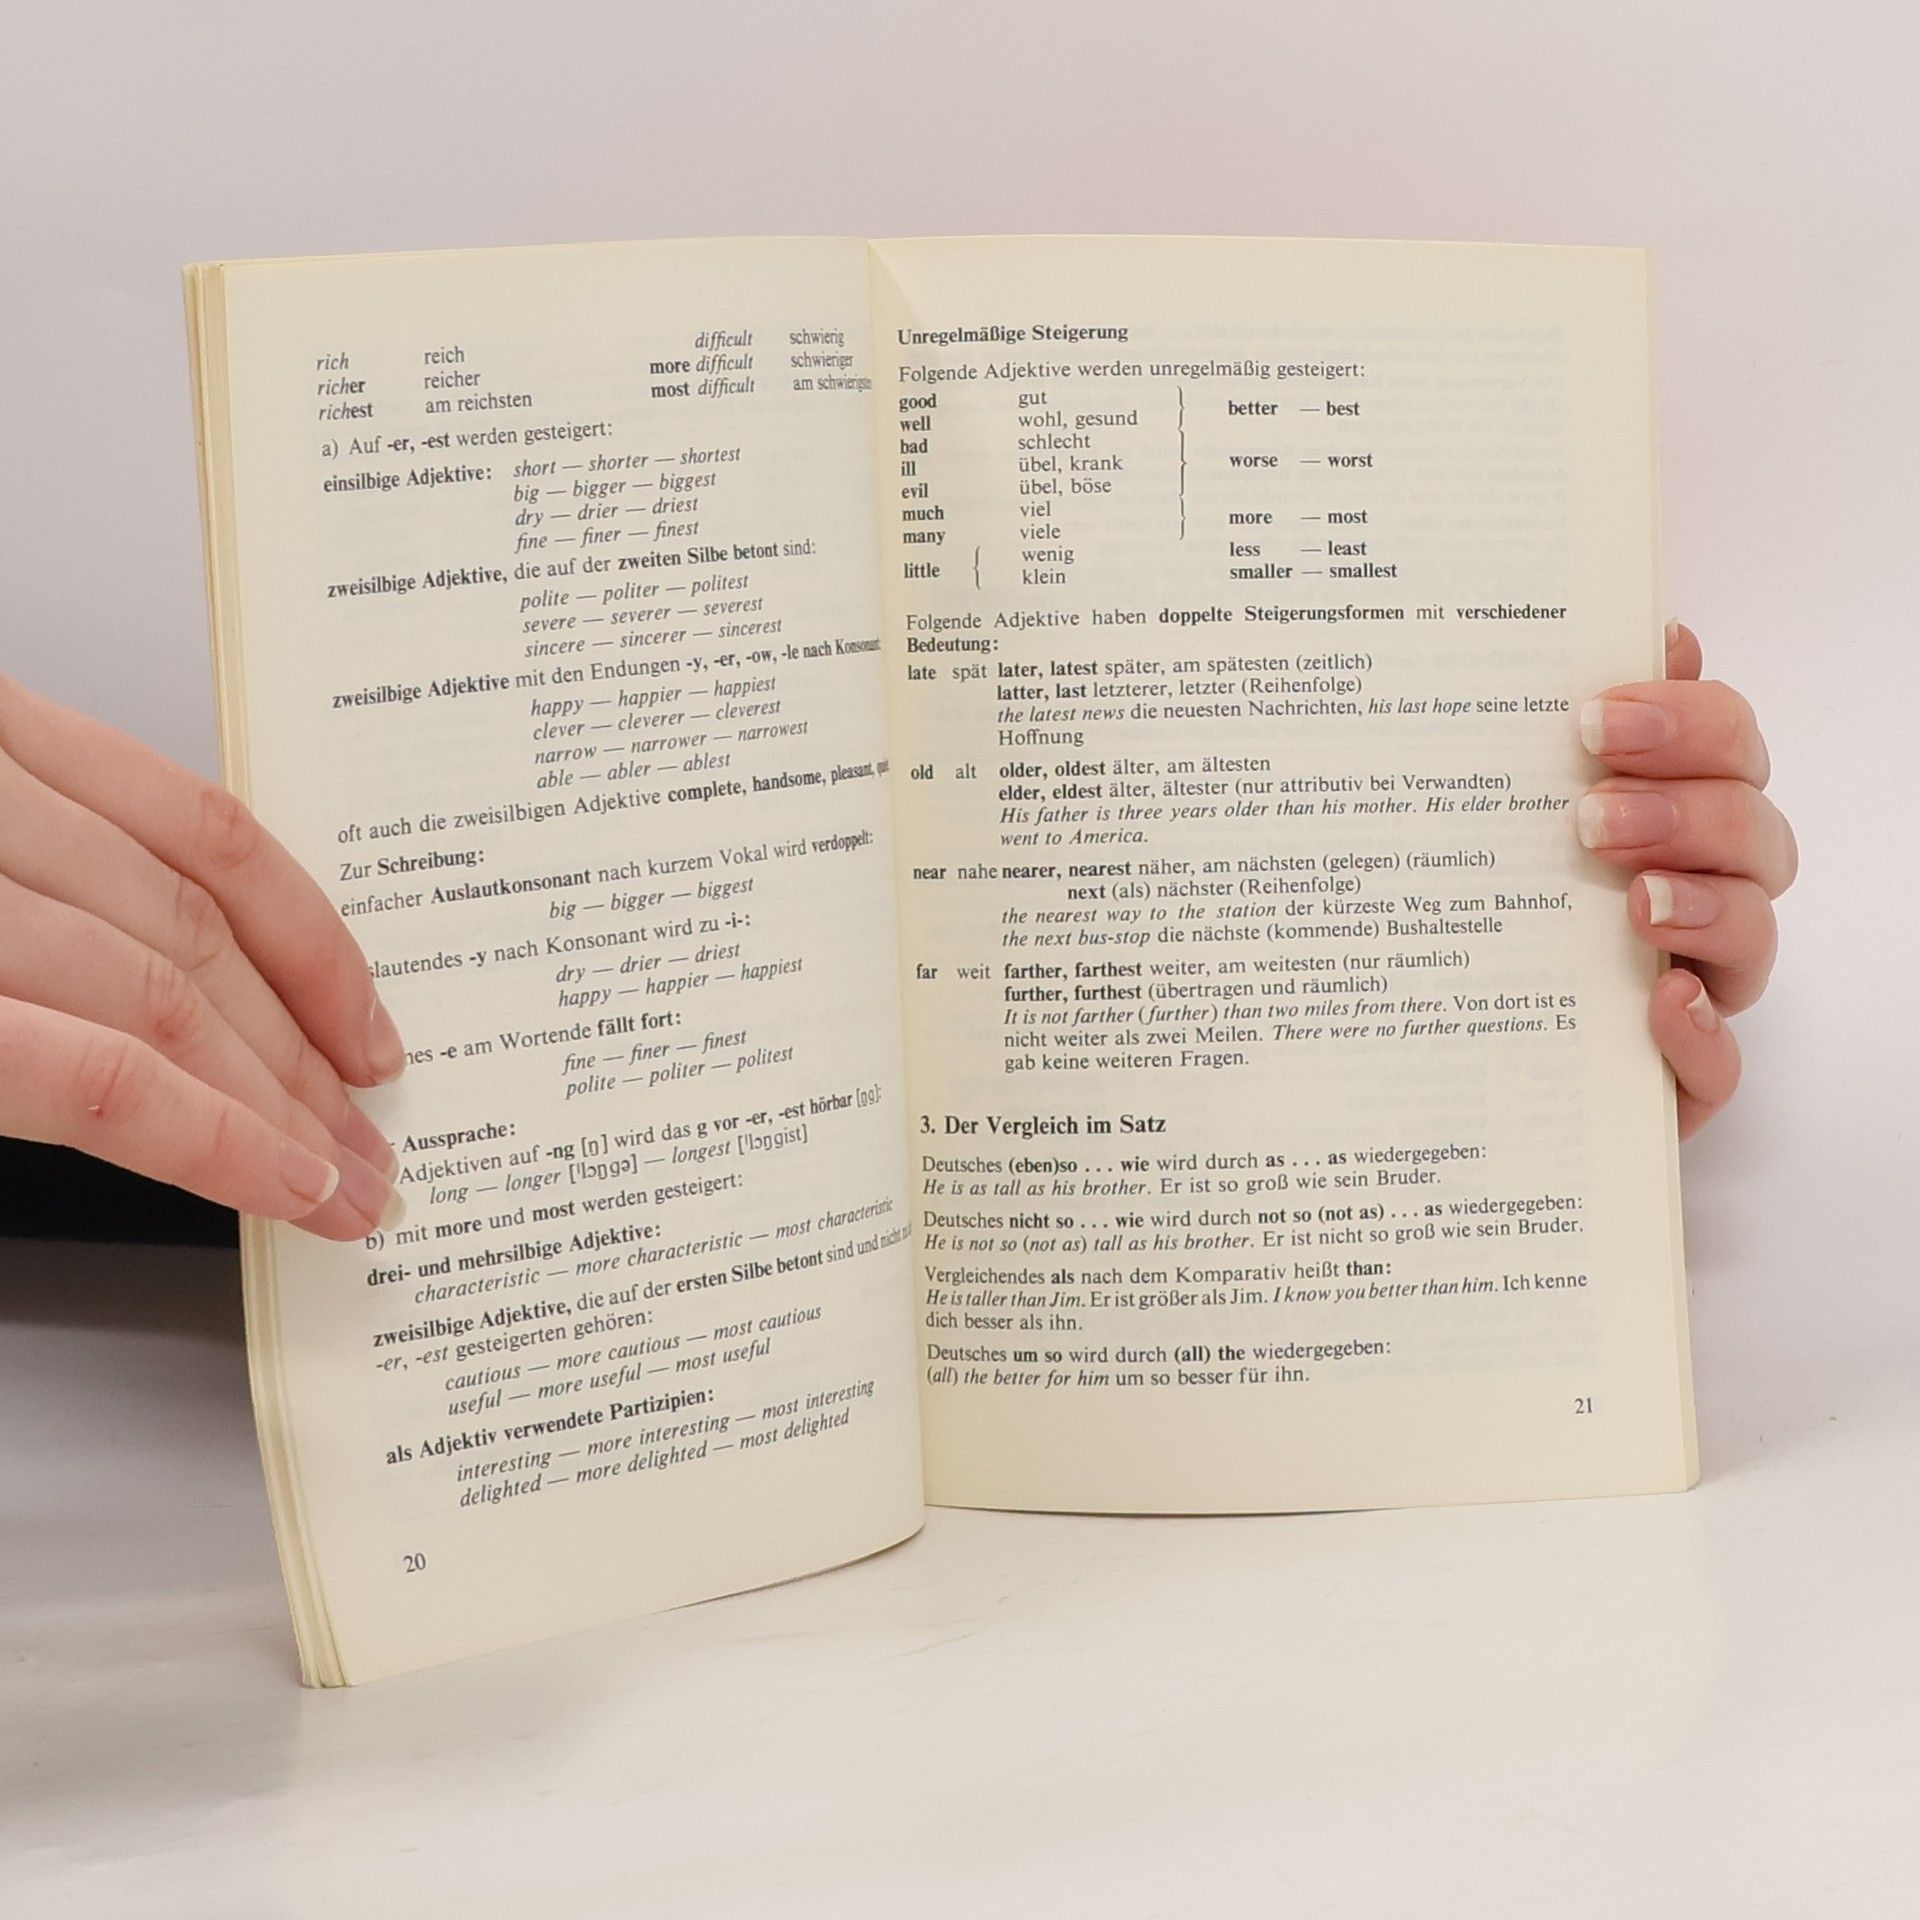 rich reich difficult schwierig
richer reicher more difficult schwieriger
richest am reichsten most difficult am schwierigsten
a) Auf -er, -est werden gesteigert:
einsilbige Adjektive: short — shorter — shortest
big — bigger — biggest
dry — drier — driest
fine — finer — finest
zweisilbige Adjektive, die auf der zweiten Silbe betont sind:
polite — politer — politest
severe — severer — severest
sincere — sincerer — sincerest
zweisilbige Adjektive mit den Endungen -y, -er, -ow, -le nach Konsonant:
happy — happier — happiest
clever — cleverer — cleverest
narrow — narrower — narrowest
able — abler — ablest
oft auch die zweisilbigen Adjektive complete, handsome, pleasant,
Zur Schreibung:
einfacher Auslautkonsonant nach kurzem Vokal wird verdoppelt:
big — bigger — biggest
slautendes -y nach Konsonant wird zu -i-:
dry — drier — driest
happy — happier — happiest
mes -e am Wortende fällt fort:
fine — finer — finest
polite — politer — politest
Aussprache:
Adjektiven auf -ng [ŋ] wird das g vor -er, -est hörbar [ŋg]:
long — longer ['lɔŋgə] — longest ['lɔŋgist]
b) mit more und most werden gesteigert:
drei- und mehrsilbige Adjektive:
characteristic — more characteristic — most characteristic
zweisilbige Adjektive, die auf der ersten Silbe betont sind und nicht
-er, -est gesteigerten gehören:
cautious — more cautious — most cautious
useful — more useful — most useful
als Adjektiv verwendete Partizipien:
interesting — more interesting — most interesting
delighted — more delighted — most delighted
20
Unregelmäßige Steigerung
Folgende Adjektive werden unregelmäßig gesteigert:
good gut
better — best
well wohl, gesund
bad schlecht
ill übel, krank worse — worst
evil übel, böse
much viel
more — most
many viele
wenig less — least
little
klein smaller — smallest
Folgende Adjektive haben doppelte Steigerungsformen mit verschiedener
Bedeutung:
late spät later, latest später, am spätesten (zeitlich)
latter, last letzterer, letzter (Reihenfolge)
the latest news die neuesten Nachrichten, his last hope seine letzte
Hoffnung
old alt older, oldest älter, am ältesten
elder, eldest älter, ältester (nur attributiv bei Verwandten)
His father is three years older than his mother. His elder brother
went to America.
near nahe nearer, nearest näher, am nächsten (gelegen) (räumlich)
next (als) nächster (Reihenfolge)
the nearest way to the station der kürzeste Weg zum Bahnhof,
the next bus-stop die nächste (kommende) Bushaltestelle
far weit farther, farthest weiter, am weitesten (nur räumlich)
further, furthest (übertragen und räumlich)
It is not farther (further) than two miles from there. Von dort ist es
nicht weiter als zwei Meilen. There were no further questions. Es
gab keine weiteren Fragen.
3. Der Vergleich im Satz
Deutsches (eben)so . . . wie wird durch as . . . as wiedergegeben:
He is as tall as his brother. Er ist so groß wie sein Bruder.
Deutsches nicht so . . . wie wird durch not so (not as) . . . as wiedergegeben:
He is not so (not as) tall as his brother. Er ist nicht so groß wie sein Bruder.
Vergleichendes als nach dem Komparativ heißt than:
He is taller than Jim. Er ist größer als Jim. I know you better than him. Ich kenne
dich besser als ihn.
Deutsches um so wird durch (all) the wiedergegeben:
(all) the better for him um so besser für ihn.
21